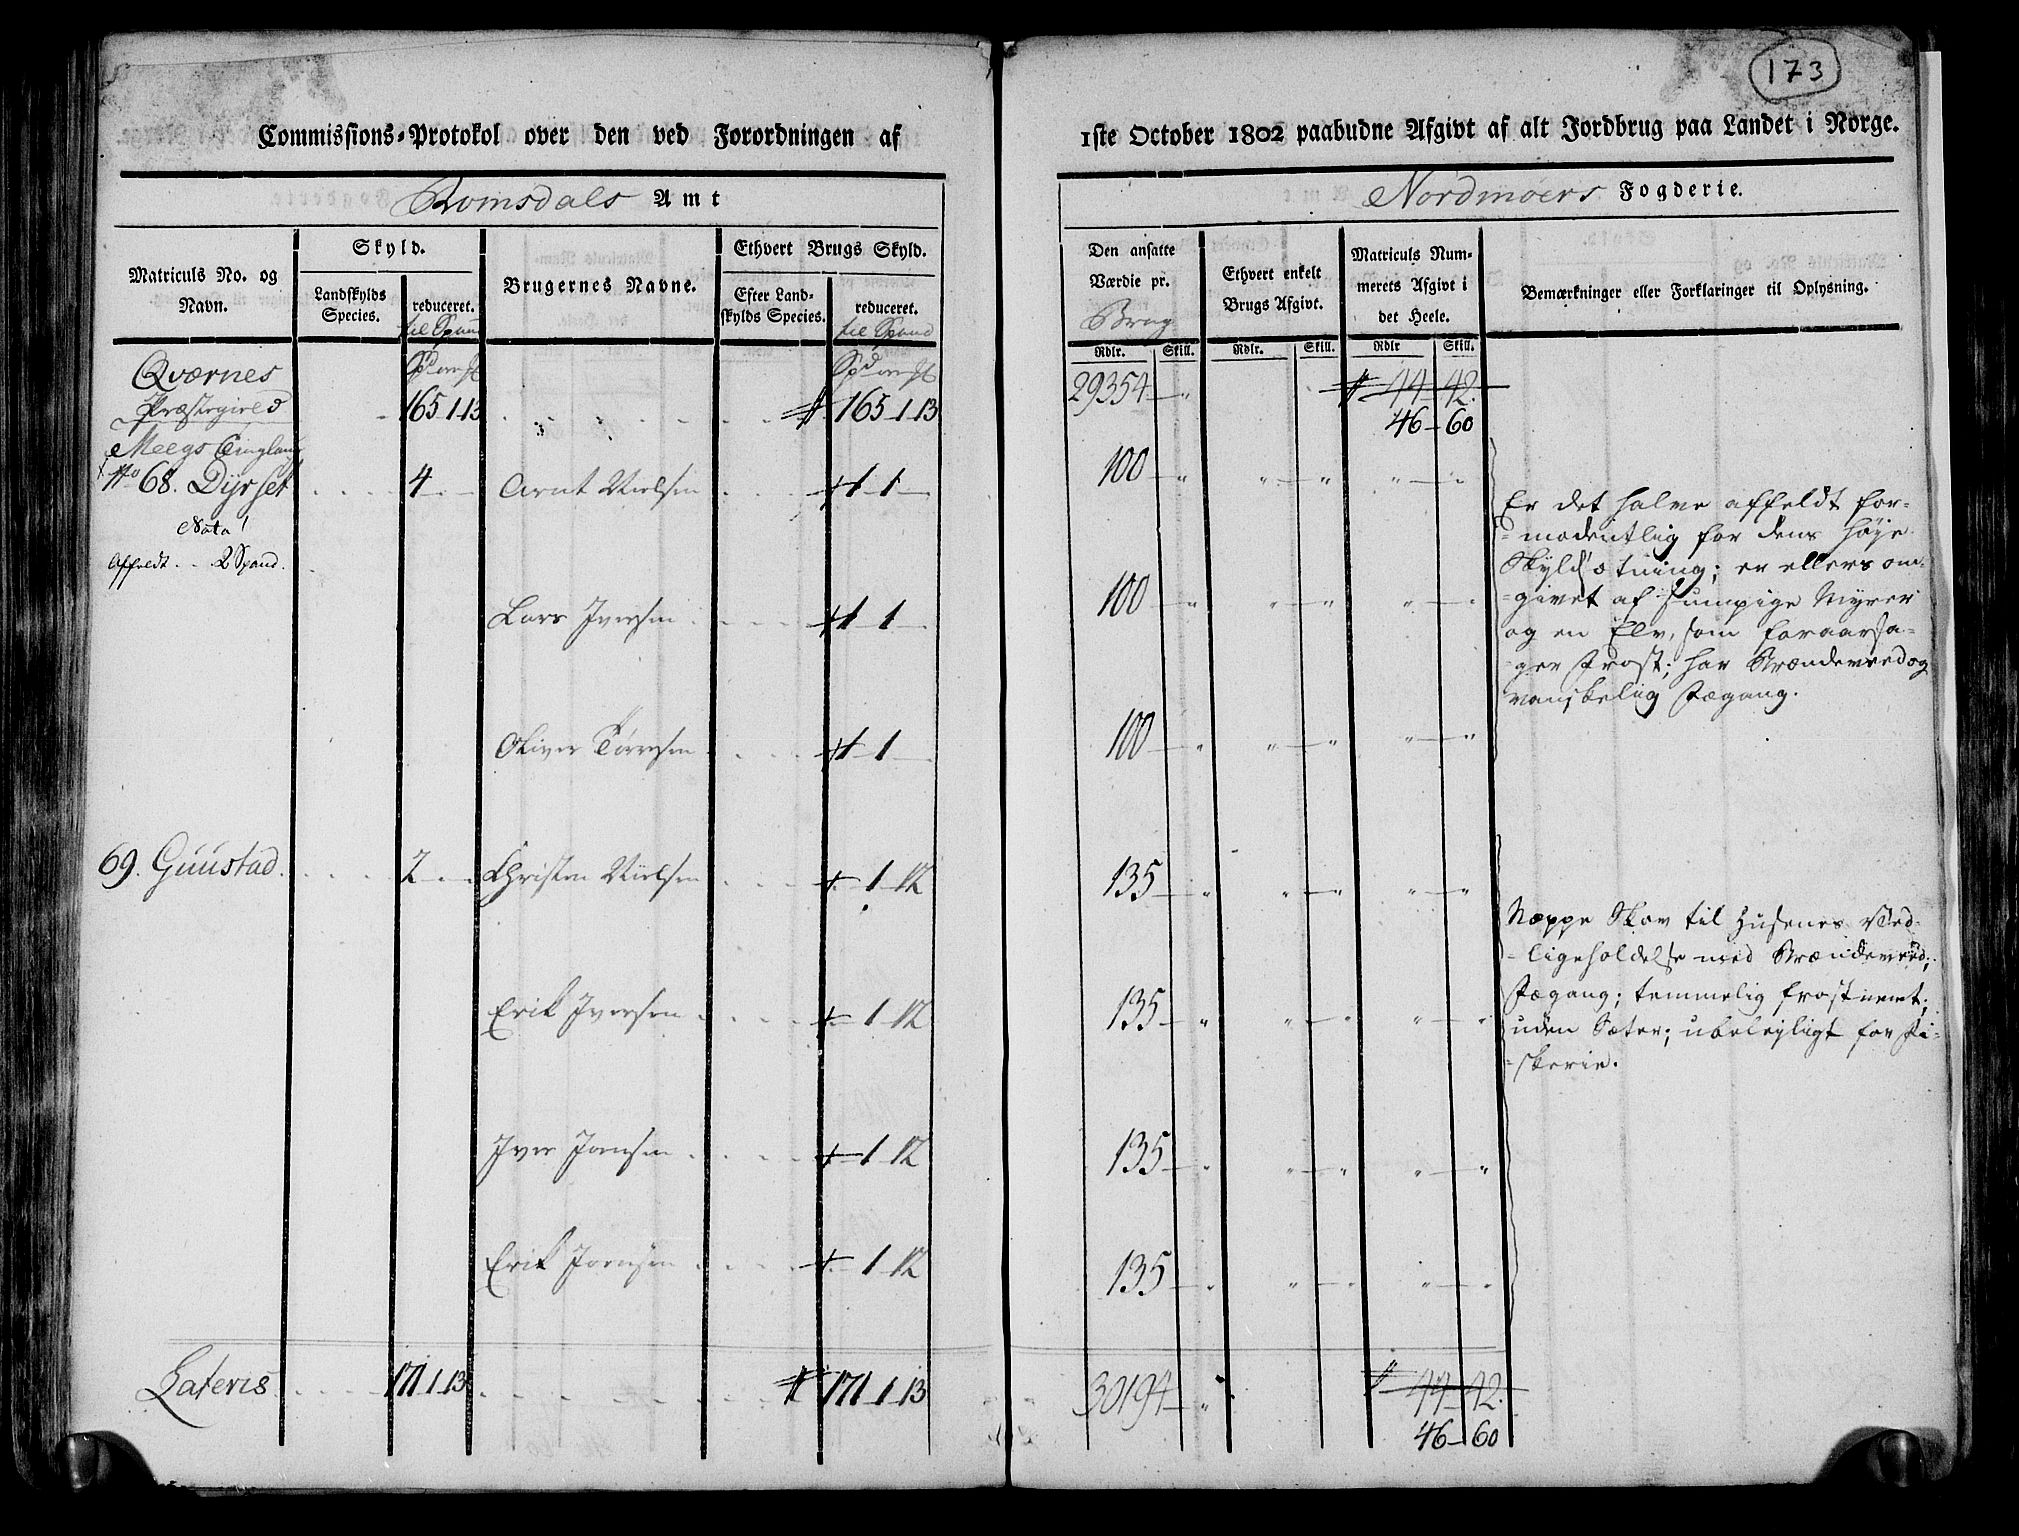 173
Commissions-Protokol over den ved Forordningen af 1ste October 1802 paabudne Afgivt af alt Jordbrug paa Landet i Norge.
Romsdals Amt
Nordmøers Fogderie.
Matriculs No. og Navn.
Skyld.
Landskylds Species.
reduceret.
til Spand
Brugernes Navne.
Ethvert Brugs Skyld.
Efter Landskylds Species.
reduceret.
til Spand
Den ansatte Værdie pr.
Brug
Ethvert enkelt Brugs Afgivt.
Matriculs Nummerets Afgivt i det Heele.
Bemærkninger eller Forklaringer til Oplysning.
Rdlr. Skill. Rdlr. Skill. Rdlr Skill.
Qværnes
Præstegield 165 1 13 165 1 13 29354 44 42.
46 60
Meegs
No 68. Dyrset 4 Arnt Nielsen 1 1 100
Nota!
Affeldt 2 Spand.
Er det halve affeldt for-
modentlig for dens høje
Skyldsætning; er ellers om-
givet af sumpige Myrer
og en Elv, som foraarsa-
ger Frost; har Brændeved og
vanskelig Fægang.
Lars Iversen 1 1 100
Oliver Tørresen 1 1 100
69. Guustad. 2 Christen Nielsen 1 12 135
Næppe Skov til Husenes Ved-
ligeholdelse med Brændeved;
Fægang; temmelig frostnemt;
uden Sæter; ubeleyligt for Fi-
skerie.
Erik Iversen 1 12 135
Iver Jonsen 1 12 135
Erik Jonsen 1 12 135
Lateris 171 1 13 171 1 13 30194 44 42.
46 60